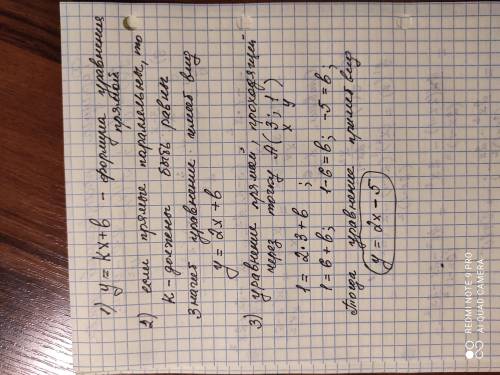 1) y = kx + b - формула уравнения
прямой
2) если прямые параллельны, то
k - должны быть равны
Значит уравнение имеет вид
y = 2x + b
3) уравнение прямой, проходящей
через точку A (3; 1)
x y
1 = 2·3 + b ;
1 = 6 + b; 1-6 = b; -5 = b;
Тогда уравнение примет вид
y = 2x - 5
REDMI NOTE 9 PRO
AI QUAD CAMERA